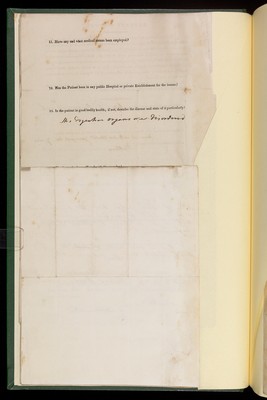 13. Have any and what medical means been employed?
14. Has the Patient been in any public Hospital or private Establishment for the Insane?
15. Is the patient in good bodily health, if not, describe the disease and state of it particularly?
digestive organs are disordered